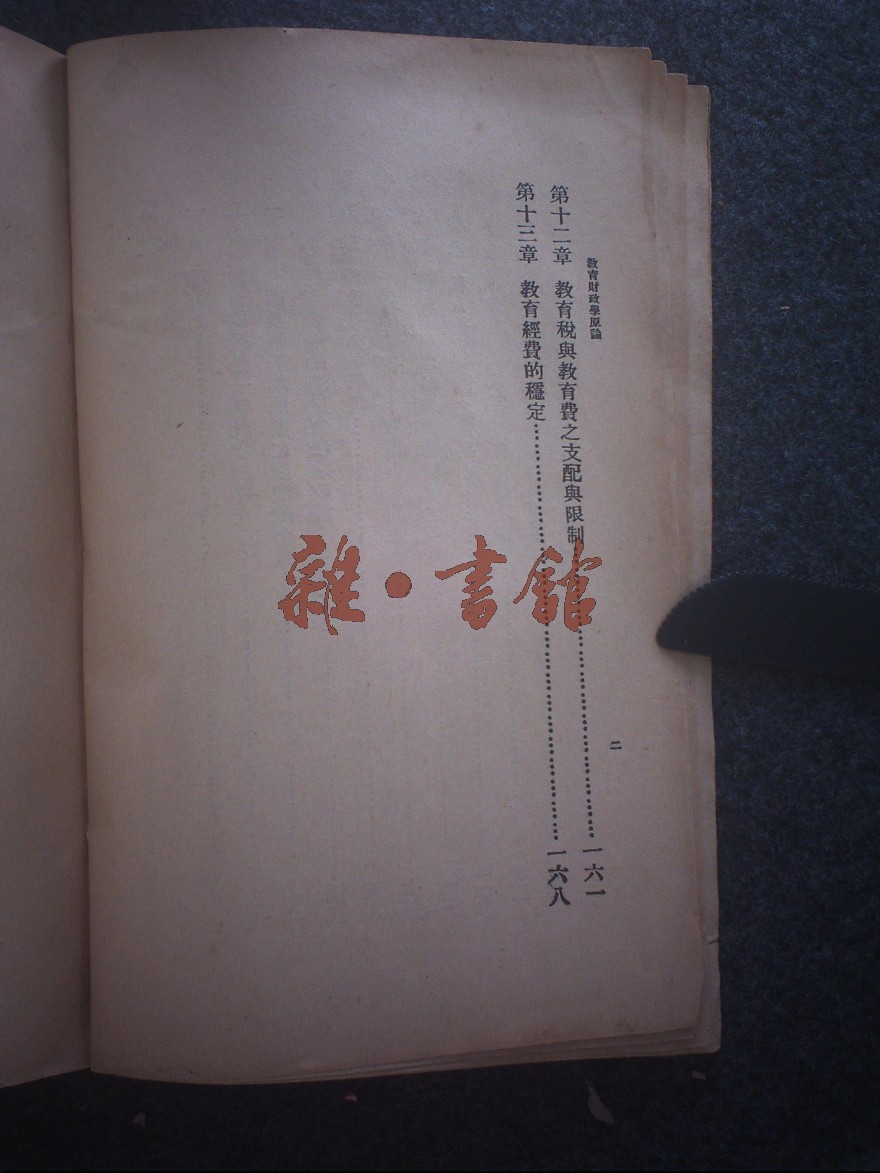 教育財政學原論
二
第十二章 教育稅與教育費之支配與限制…………一六一
第十三章 教育經費的穩定…………一六八
雜·書館